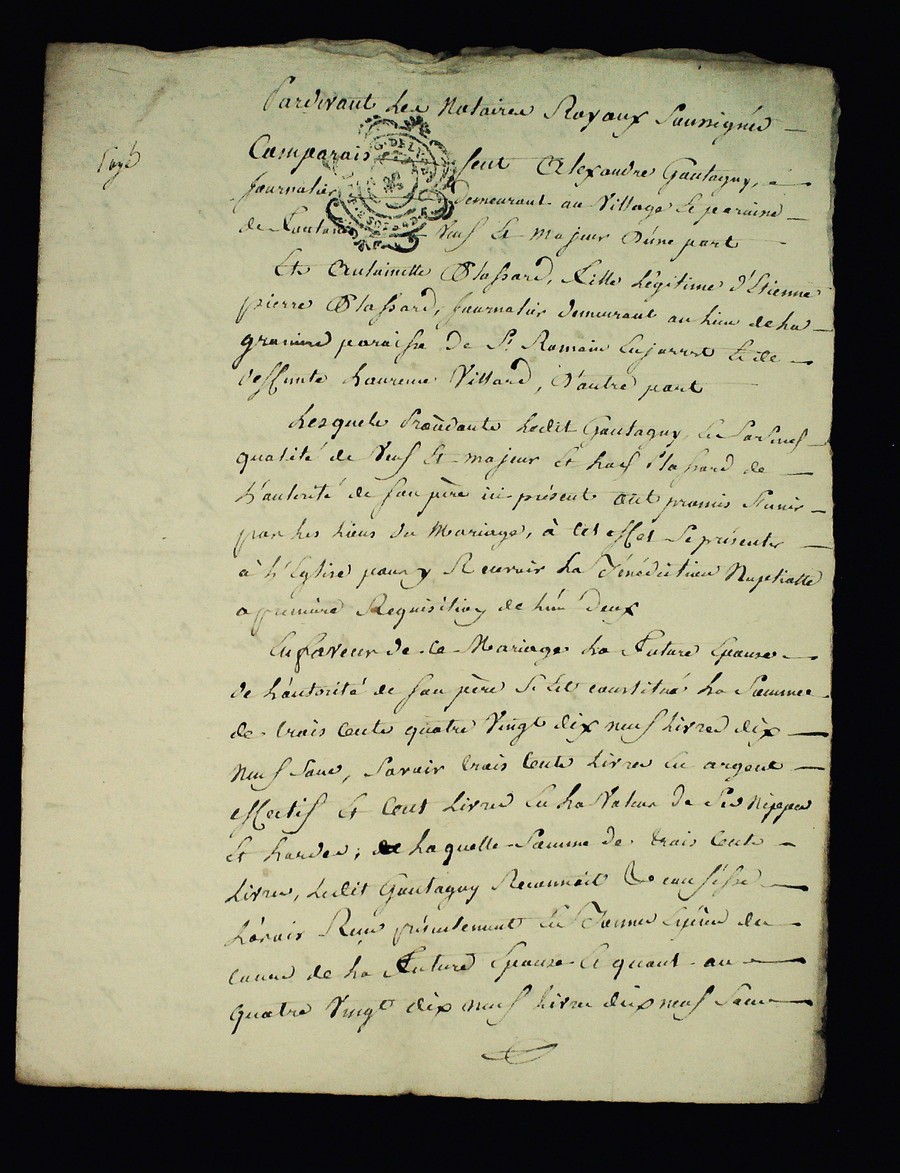 Pardevant Les Notaires Royaux Soussignés
Expé
Comparais sent Alexandre Gantagny,
G. DE LYON
2 SOLS
Journalier demeurant au Village et paroisse
de Veuf Et majeur D'une part
Et Antoinette Plassard, Fille Légitime d'Etienne
pierre Plassard, Journalier demeurant au Lieu de La
paroisse De St. Romain Et de
deffunte Laurence Villard, D'autre part
Lesquels Procédants Ledit Gantagny, En Sa Sus
qualité de Veuf Et majeur Et Lad. Plassard de
L'autorité de Son père ici présent ont promis S'unir
par Les Liens du Mariage, à Cet effet Se présenter
à L'Eglise pour y Recevoir La Bénédiction Nuptialle
a première Requisition de L'un Deux
En faveur de Ce Mariage La Future Epouse
de L'autorité de Son père S'Est constitué La Somme
de trois Cents quatre Vingt dix neuf Livres dix
Neuf Sous, Savoir trois Cents Livres En argent
effectif Et Cent Livres En La Valeur de Ses Nippes
Et hardes; Laquelle Somme de trois Cents
Livres, Ledit Gantagny Reconnoit & confesse
L'avoir Reçu présentement En Bonnes Espèces du
cours de La Future Epouse Et quant aux
quatre Vingt dix neuf Livres dix neuf Sous